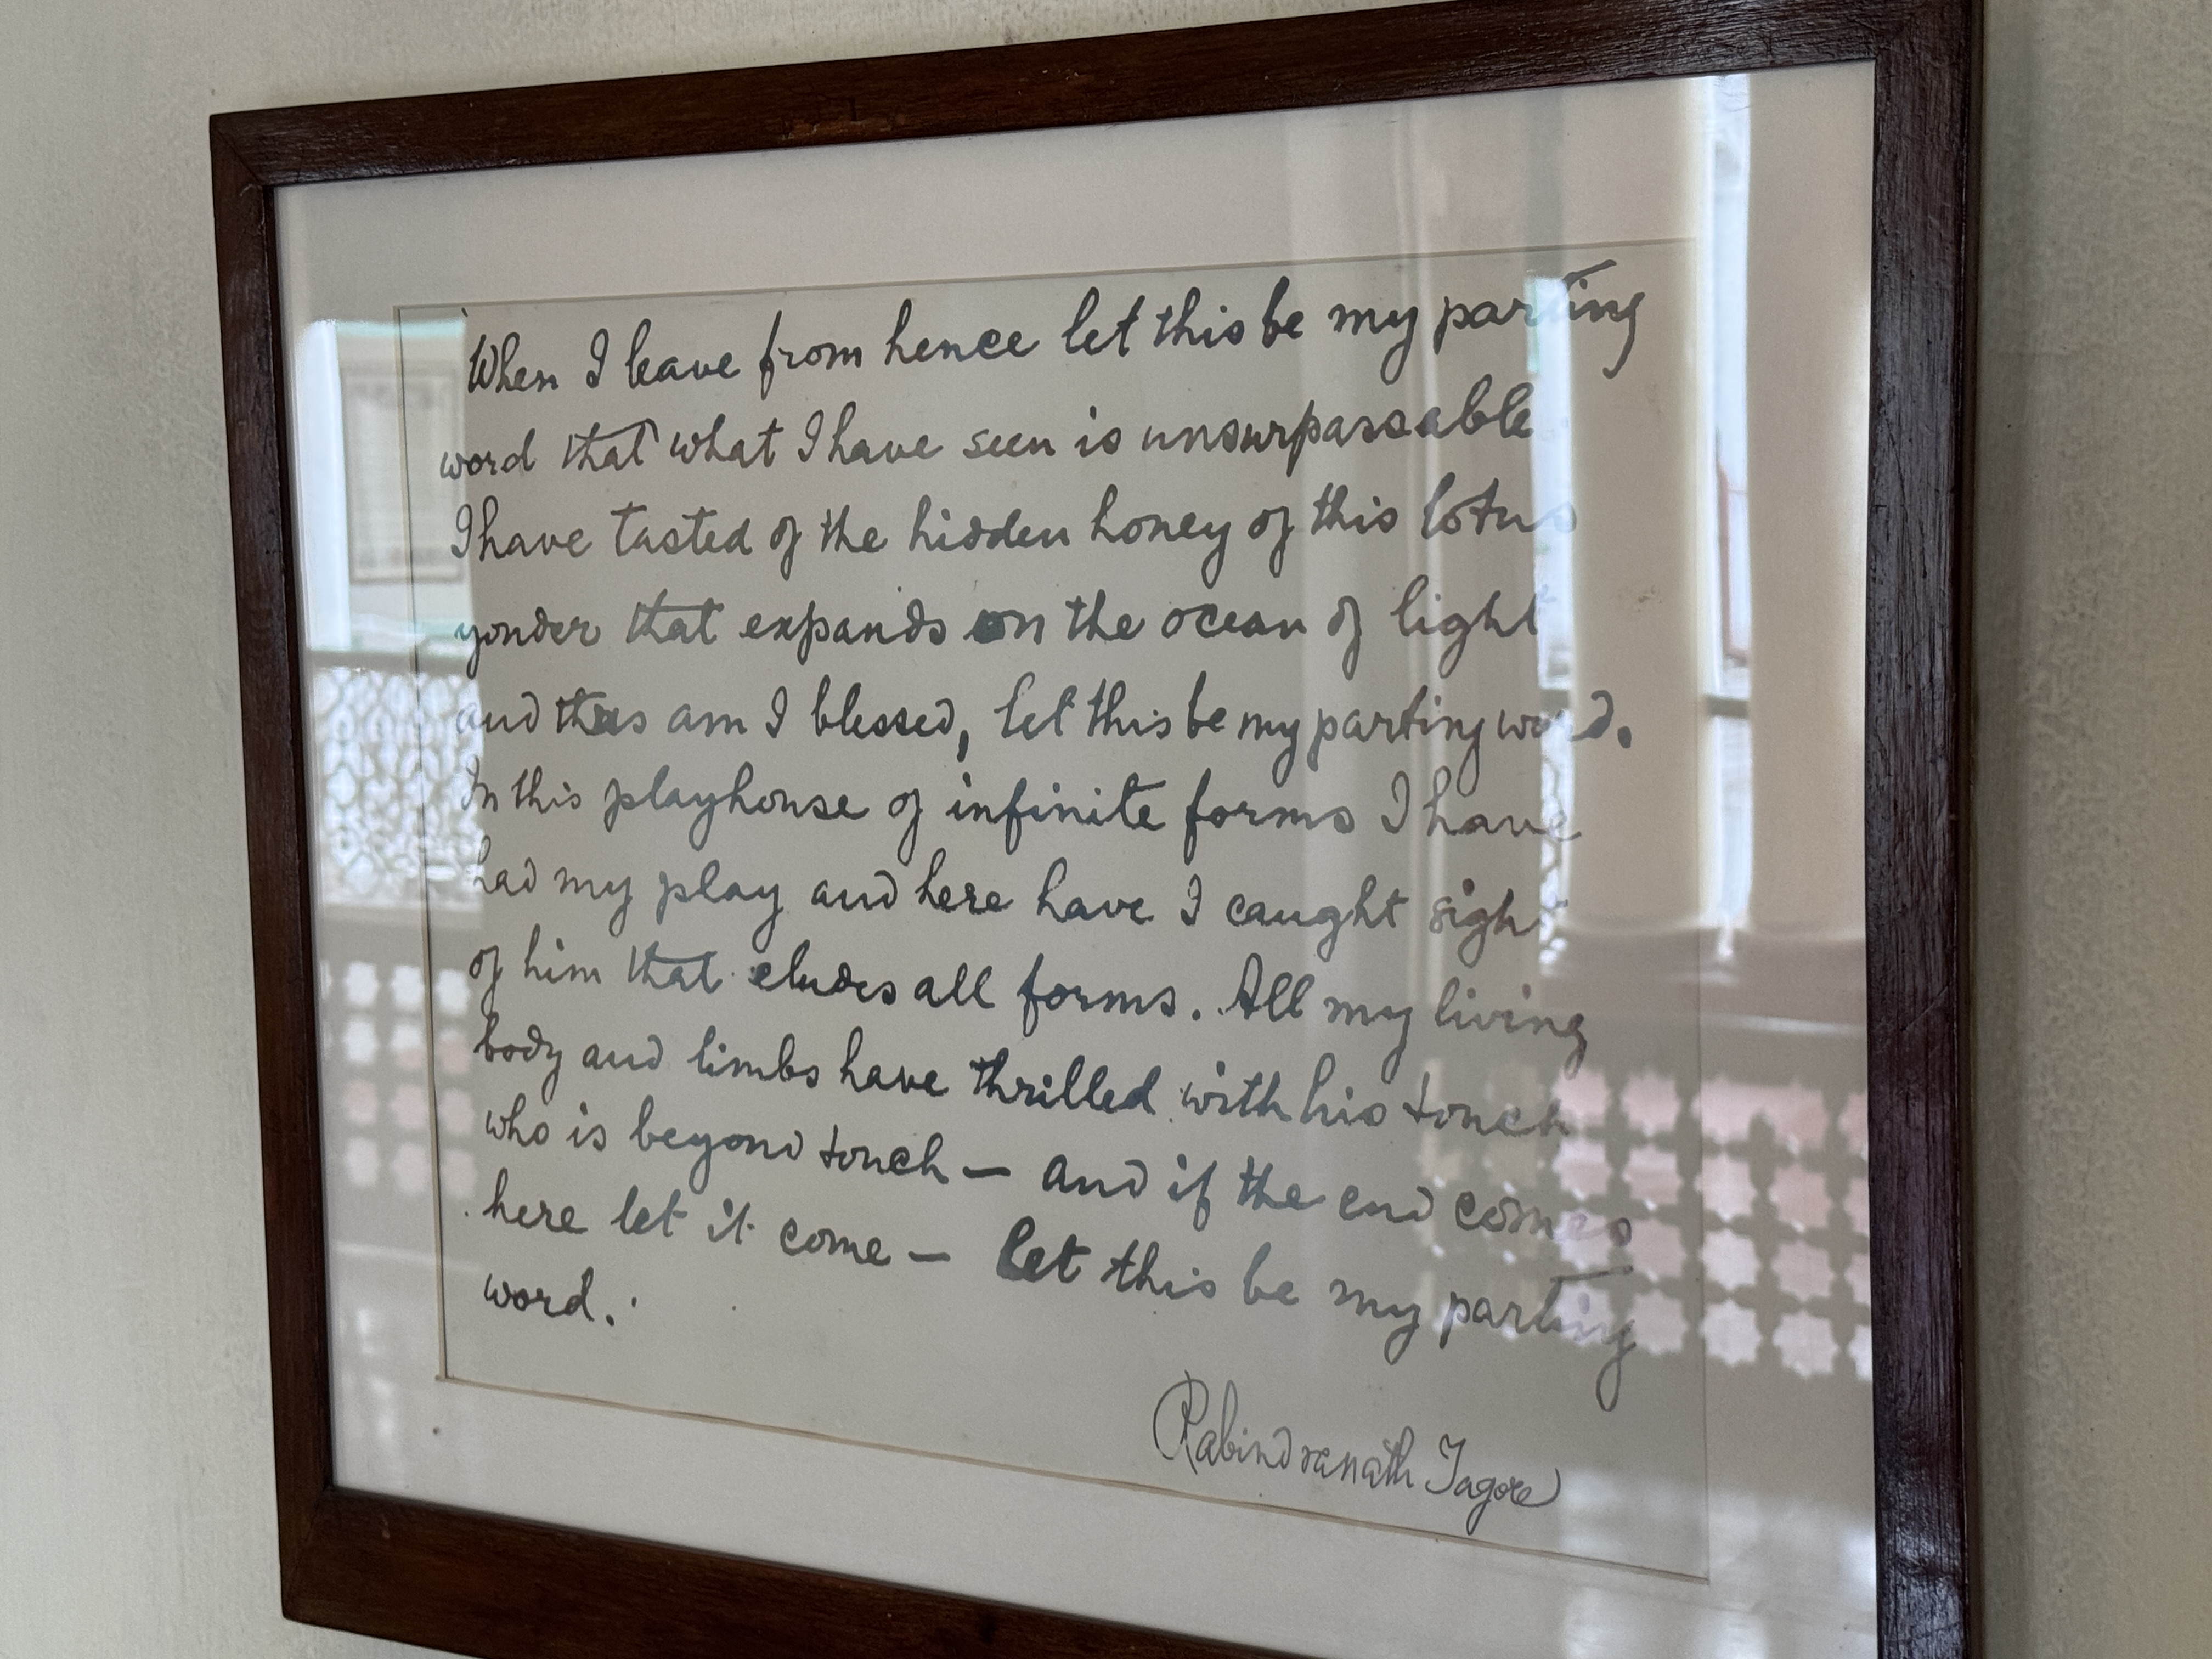 When I leave from hence let this be my parting
word that what I have seen is unsurpassable
I have tasted of the hidden honey of this lotus
yonder that expands on the ocean of light
and thus am I blessed, let this be my parting word.
In this playhouse of infinite forms I have
had my play and here have I caught sight
of him that eludes all forms. All my living
body and limbs have thrilled with his touch
who is beyond touch — and if the end comes
here let it come — let this be my parting
word.
Rabindranath Tagore